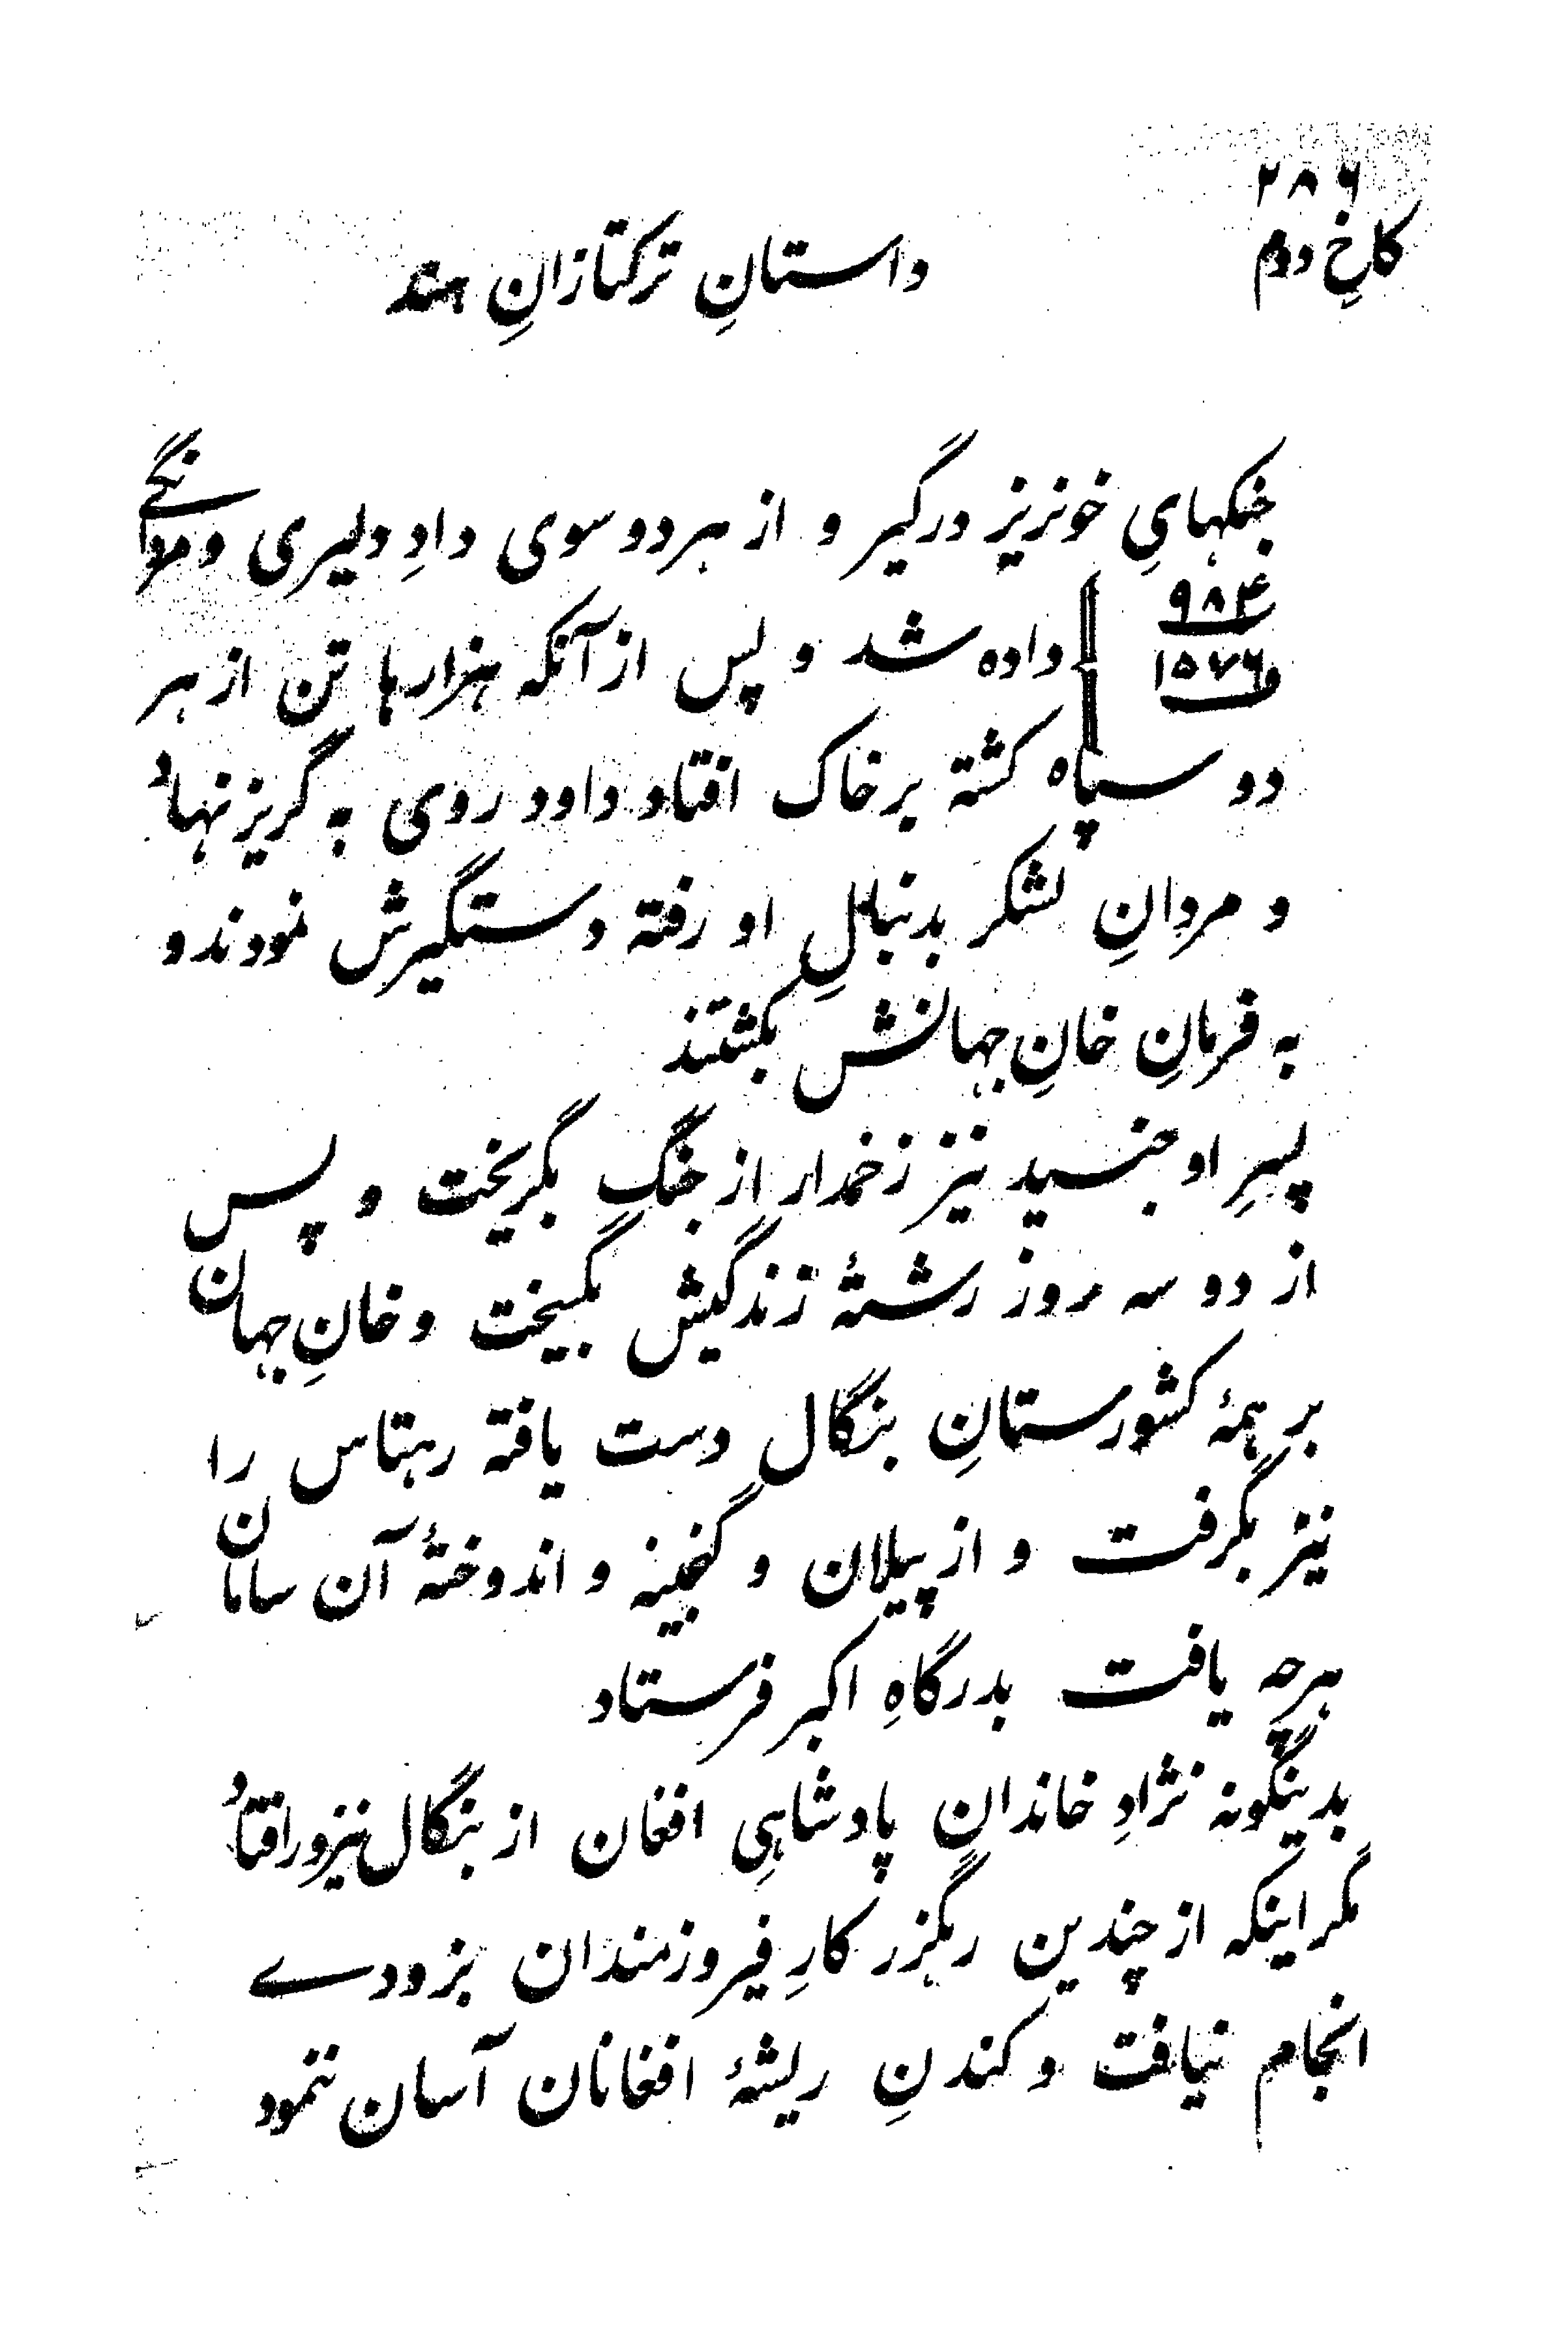 ۲۸۶
کاخِ دوم
داستانِ ترکتازانِ هند
جنگهایِ خونریز درگیر و از هر دو سوی دادِ دلیری و مردانگے
۹۸۴
داده شد و پس از آنکه هزارها تن از هر
۱۵۷۶
دو سپاه کشته بر خاک افتاد داود روی به گریز نهاد
و مردانِ لشکر بدنبالِ او رفته دستگیرش نمودند و
به فرمانِ خانِ جهانش بکشتند
پسرِ او جنید نیز زخمدار از جنگ بگریخت و پس
از دو سه روز رشتهٔ زندگیش بگسیخت و خانِ جهان
بر همهٔ کشورستانِ بنگال دست یافته رهتاس را
نیز بگرفت و از پیلان و گنجینه و اندوختهٔ آن سامان
هرچه یافت بدرگاهِ اکبر فرستاد
بدینگونه نژادِ خاندانِ پادشاهیِ افغان از بنگال نیز ورافتاد
مگر اینکه از چندین رهگزر کارِ فیروزمندان بزودے
انجام نیافت و کندنِ ریشهٔ افغانان آسان ننمود